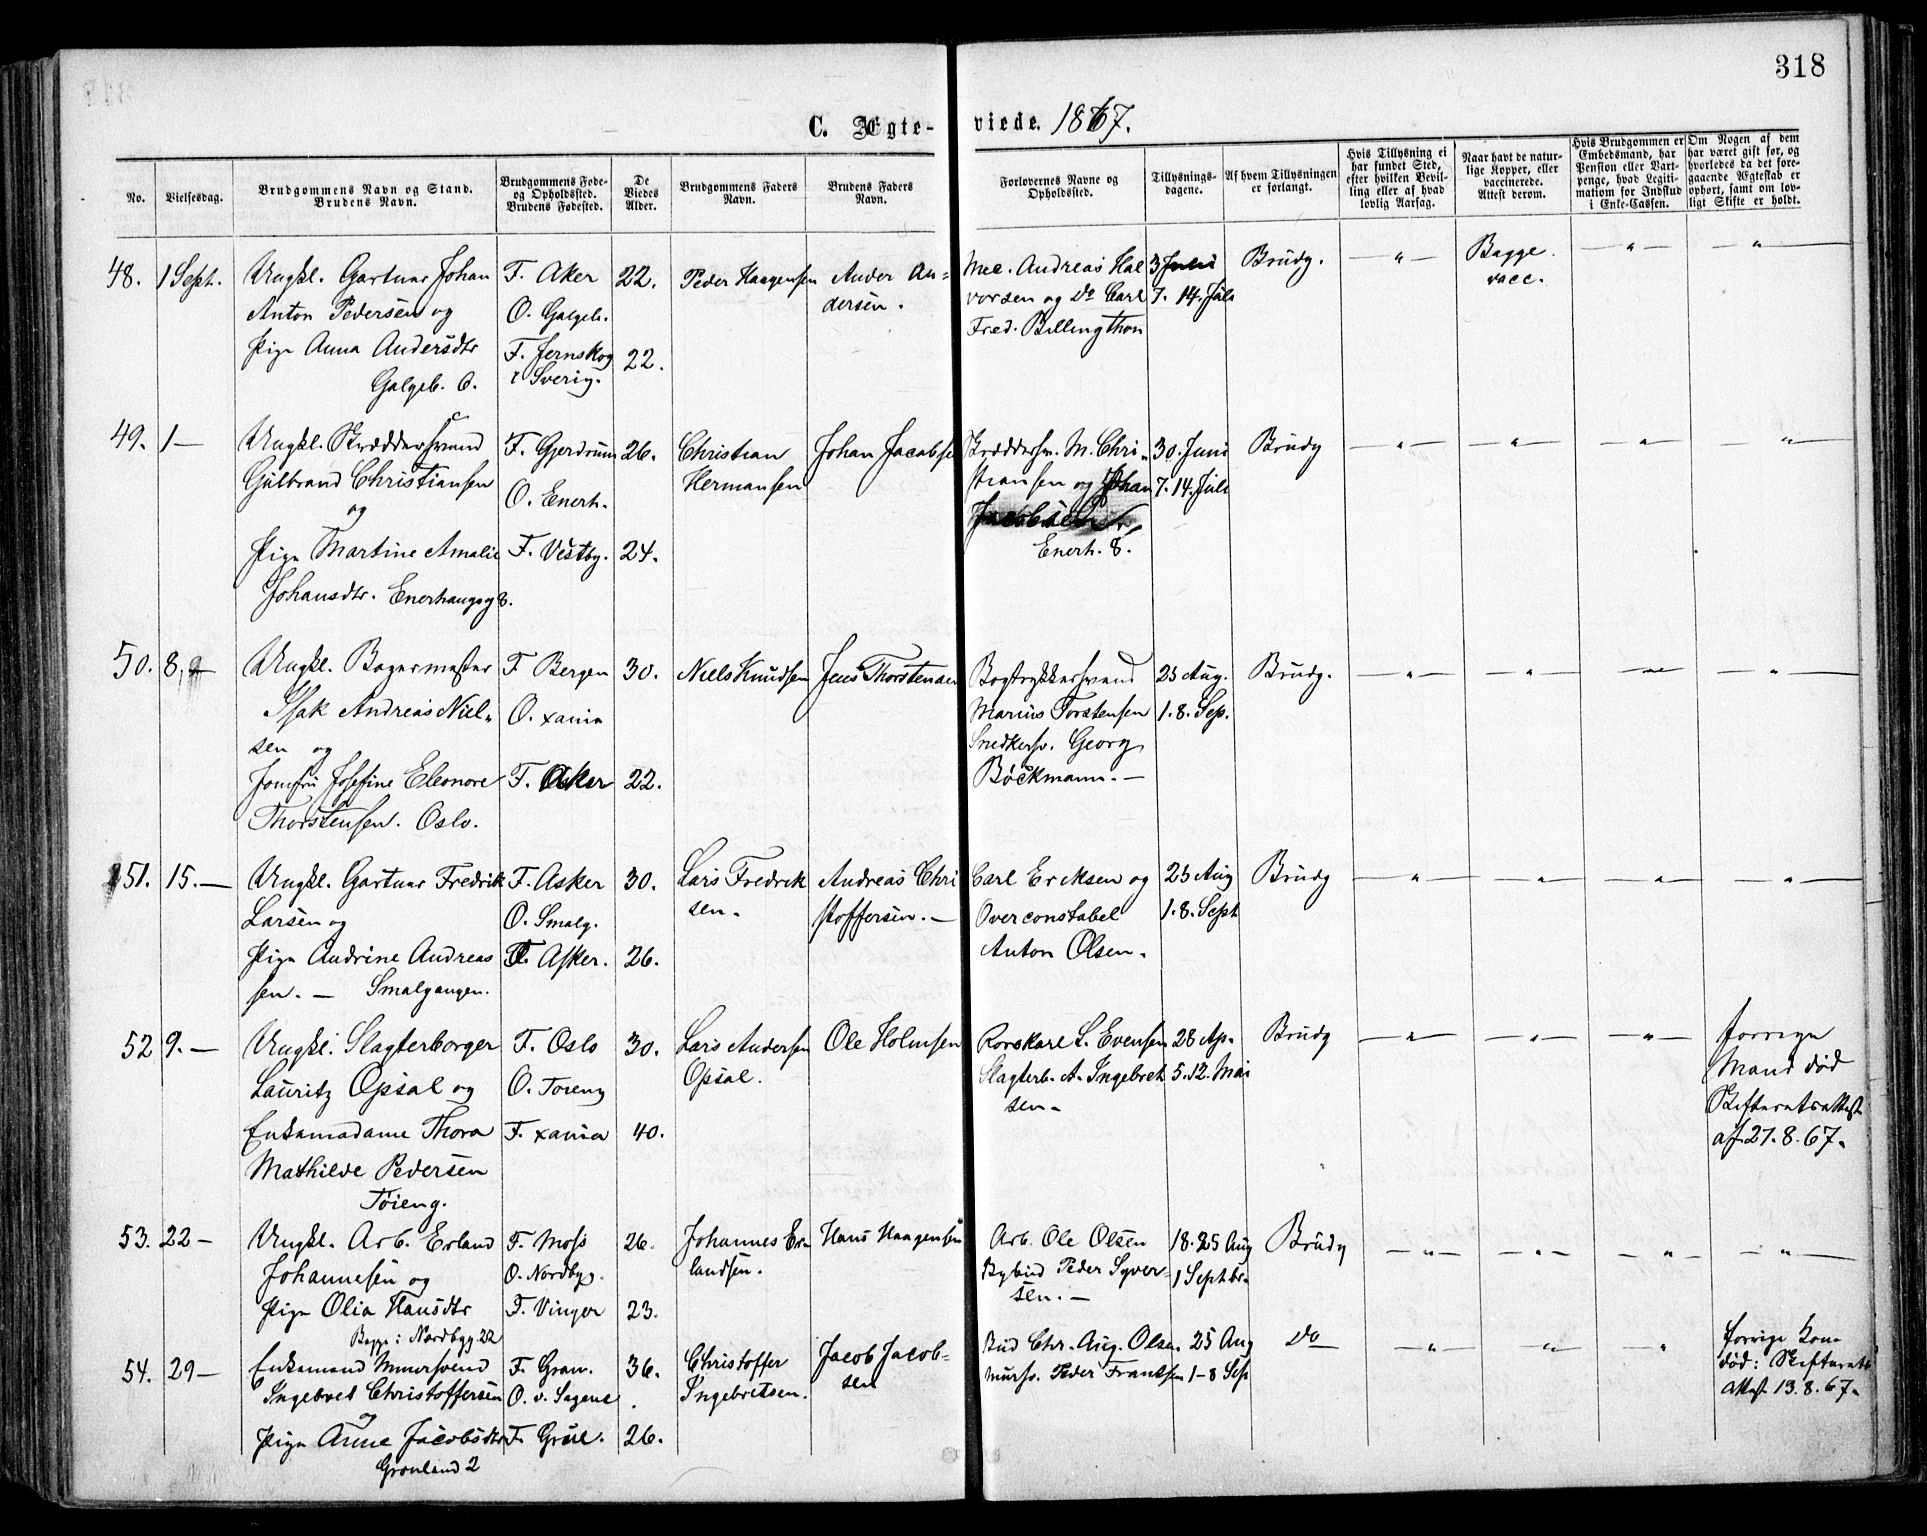 318
C. Ægte-viede. 1867.
No.
Vielsesdag.
Brudgommens Navn og Stand.
Brudens Navn.
Brudgommens Føde-
og Opholdssted.
Brudens Fødested.
De
Viedes
Alder.
Brudgommens Faders
Navn.
Brudens Faders
Navn.
Forlovernes Navne og
Opholdssted.
Tillysnings-
dagene.
Af hvem Tillysningen
er forlangt.
Hvis Tillysning ei
har fundet Sted,
efter hvilken Bevil-
ling eller af hvad
lovlig Aarsag.
Naar havt de natur-
lige Kopper, eller
vaccinerede.
Attest derom.
Hvis Brudgommen er
Embedsmand, har
Pension eller Vart-
penge, hvad Legiti-
mation for Indskud
i Enke-Cassen.
Om Nogen af dem
har været gift før, og
hvorledes da det fore-
gaaende Ægteskab er
ophørt, samt om lov-
ligt Skifte er holdt.
48. 1 Sept.
Ungkl. Gartner Johan
Anton Pedersen og
Pige Anna Andersdtr
Galgeb. 6.
F. Aker
O. Galgeb.
F. Jernskog
i Sverig.
22.
22.
Peder Haagensen
Ander An-
dersen.
Mec. Andreas Hal
vorsen og Do Carl
Fred. Billingthon
3 Juli
7. 14. Juli
Brudg.
Bagge.
vacc.
49. 1 —
Ungkl. Skræddersvend
Gulbrand Christiansen
og
Pige Martine Amalie
Johansdtr. Enerhaugsg 8.
F. Gjerdrum
O. Enerh.
F. Vestby.
26.
24.
Christian
Hermansen
Johan Jacobse
Skræddersv. M. Chri-
stiansen og Johan
Jacobsen
Enerh. 8.
30. Juni
7. 14. Juli
Brudg
50. 8.
Ungkl. Bagermester
Isak Andreas Niel-
sen og
Jomfru Josefine Eleonore
Thorstensen. Oslo.
F Bergen
O. xania
F. Aker
30.
22.
Niels Knudsen
Jens Thorstensen
Bogtrykkersvend
Marius Torstensen
Snedkersv. Georg
Böckmann. —
25 Aug.
1. 8. Sep.
Brudg.
51. 15. —
Ungkl. Gartner Fredrik
Larsen og
Pige Andrine Andreas
sen. — Smalgangen.
F. Asker
O. Smalg.
F. Asker.
30.
26.
Lars Fredrik
sen.
Andreas Chri
stoffersen. —
Carl Eriksen og
Overconstabel
Anton Olsen.
25 Aug
1. 8. Sept
Brudg
52 9. —
Ungkl. Slagterborger
Lauritz Opsal og
Enkemadame Thora
Mathilde Pedersen
Töieng.
F. Oslo
O. Toieng
F. xania
30.
40.
Lars Andersen
Opsal.
Ole Holmsen
Rorskarl L. Evensen
Slagterb. A. Ingebret
sen.
28 Ap.
5. 12. Mai
Brudg
forrige
Mand död
Skifteretsattest
af 27. 8. 67.
53. 22 —
Ungkl. Arb. Erland
Johannesen og
Pige Olia Hansdtr
Begge i Nordbyg. 22
F. Moss
O. Nordbyg.
F. Vinger
26.
23.
Johannes Er-
landsen.
Hans Haagensen
Arb. Ole Olsen
Bybud Peder Syver-
sen. —
18. 25 Aug
1 Septbr.
Brudg
54. 29 —
Enkemand Mursvend
Ingebret Christoffersen
og
Pige Anne Jacobsdtr
Gronland 2
F. Gran.
O. v. Sagene
F. Grue.
36.
26.
Christoffer
Ingebretsen.
Jacob Jacob-
sen
Bud Chr. Aug. Olsen.
Mursv. Peder Frantsen
25 Aug
1-8 Sep
Do
forrige Kone
död: Skifterets
attest 13. 8. 67.